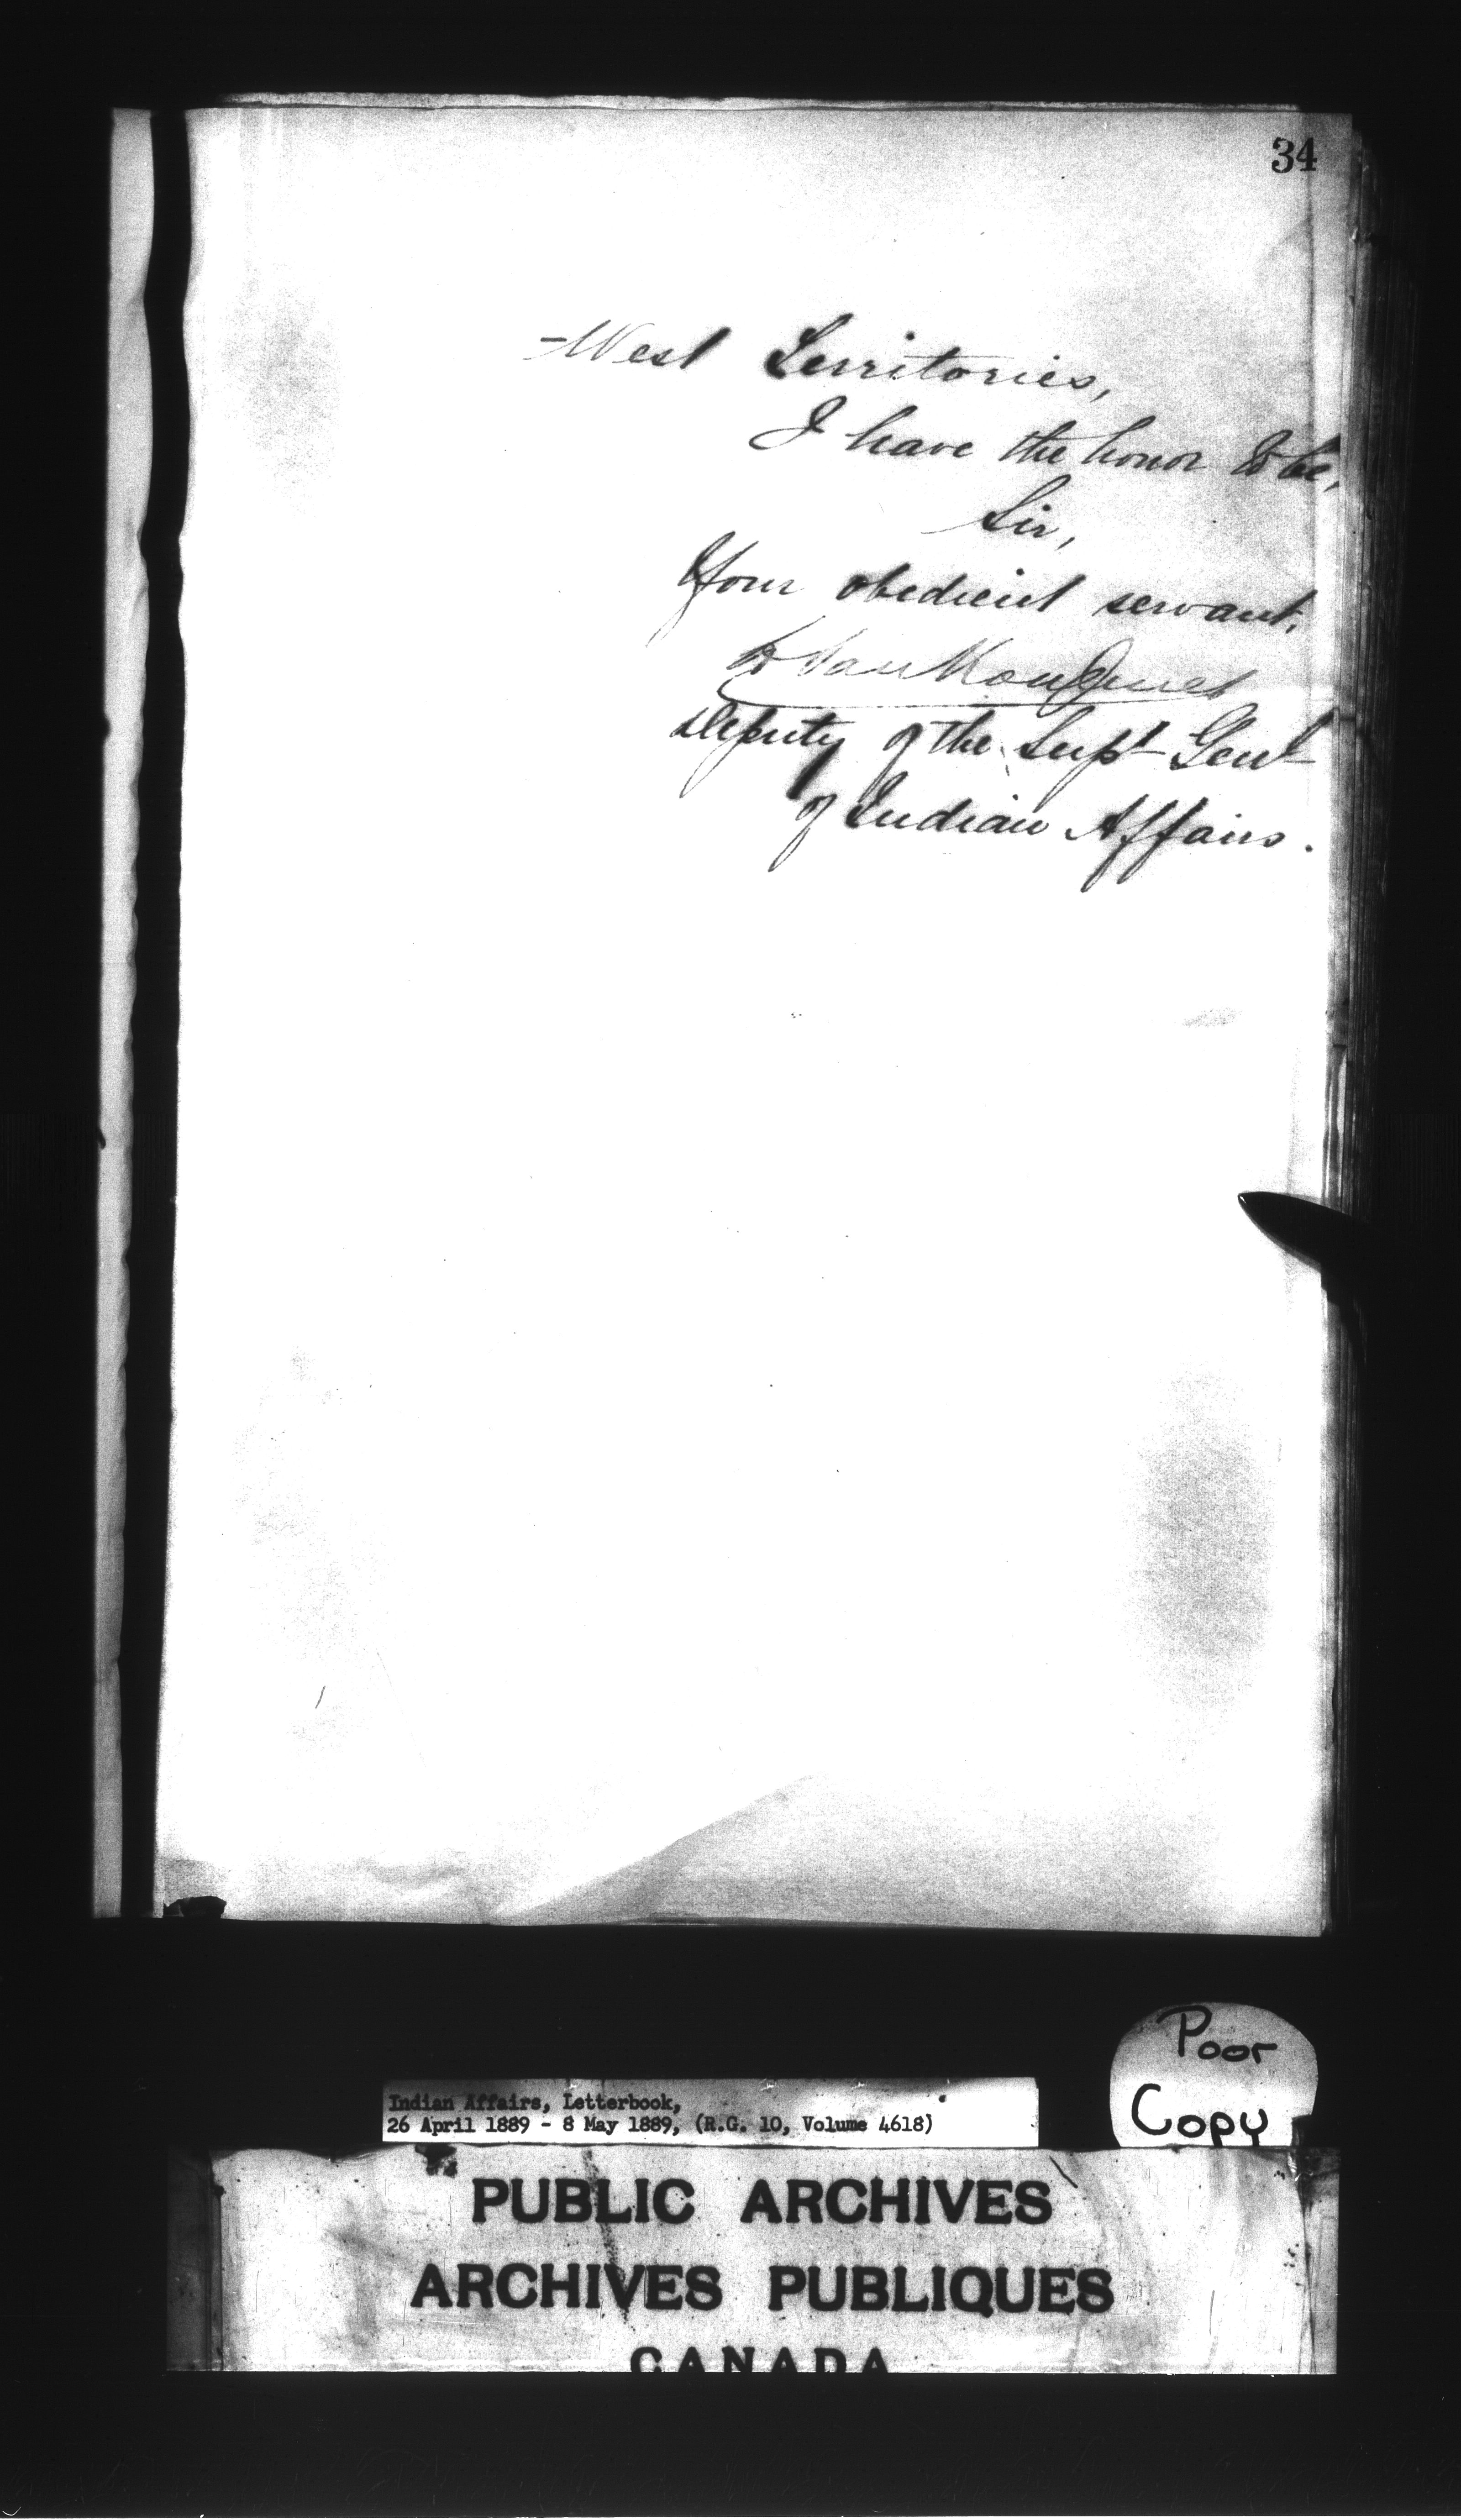 34
-West Territories,
I have the honor to be,
Sir,
Your obedient servant,
L VanKoughnet
Deputy of the Supt Genl
of Indian Affairs.
Poor
Copy
Indian Affairs, Letterbook,
26 April 1889 - 8 May 1889, (R.G. 10, Volume 4618)
PUBLIC ARCHIVES
ARCHIVES PUBLIQUES
CANADA